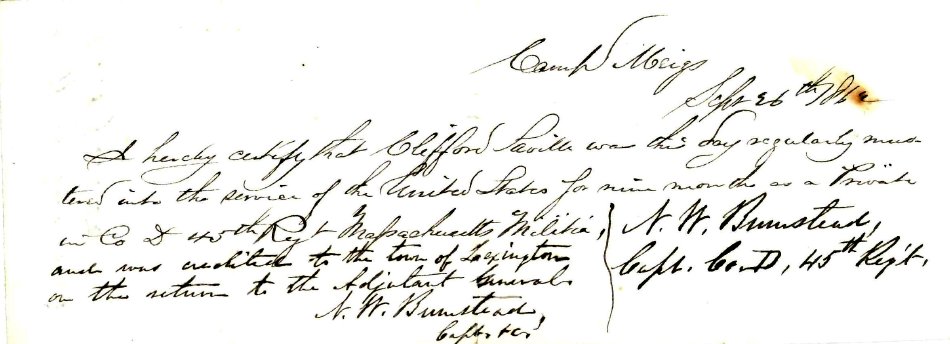 Camp Meigs
Sept 26th 1862
I hereby certify that Clifford Saville was this day regularly mus
tered into the service of the United States for nine months as a Private
in Co D 45th Regt Massachusetts Militia,
and was credited to the town of Lexington
on the return to the Adjutant General.
N. W. Bumstead,
Capt. &c.
N. W. Bumstead,
Capt. Co. D, 45th Regt.